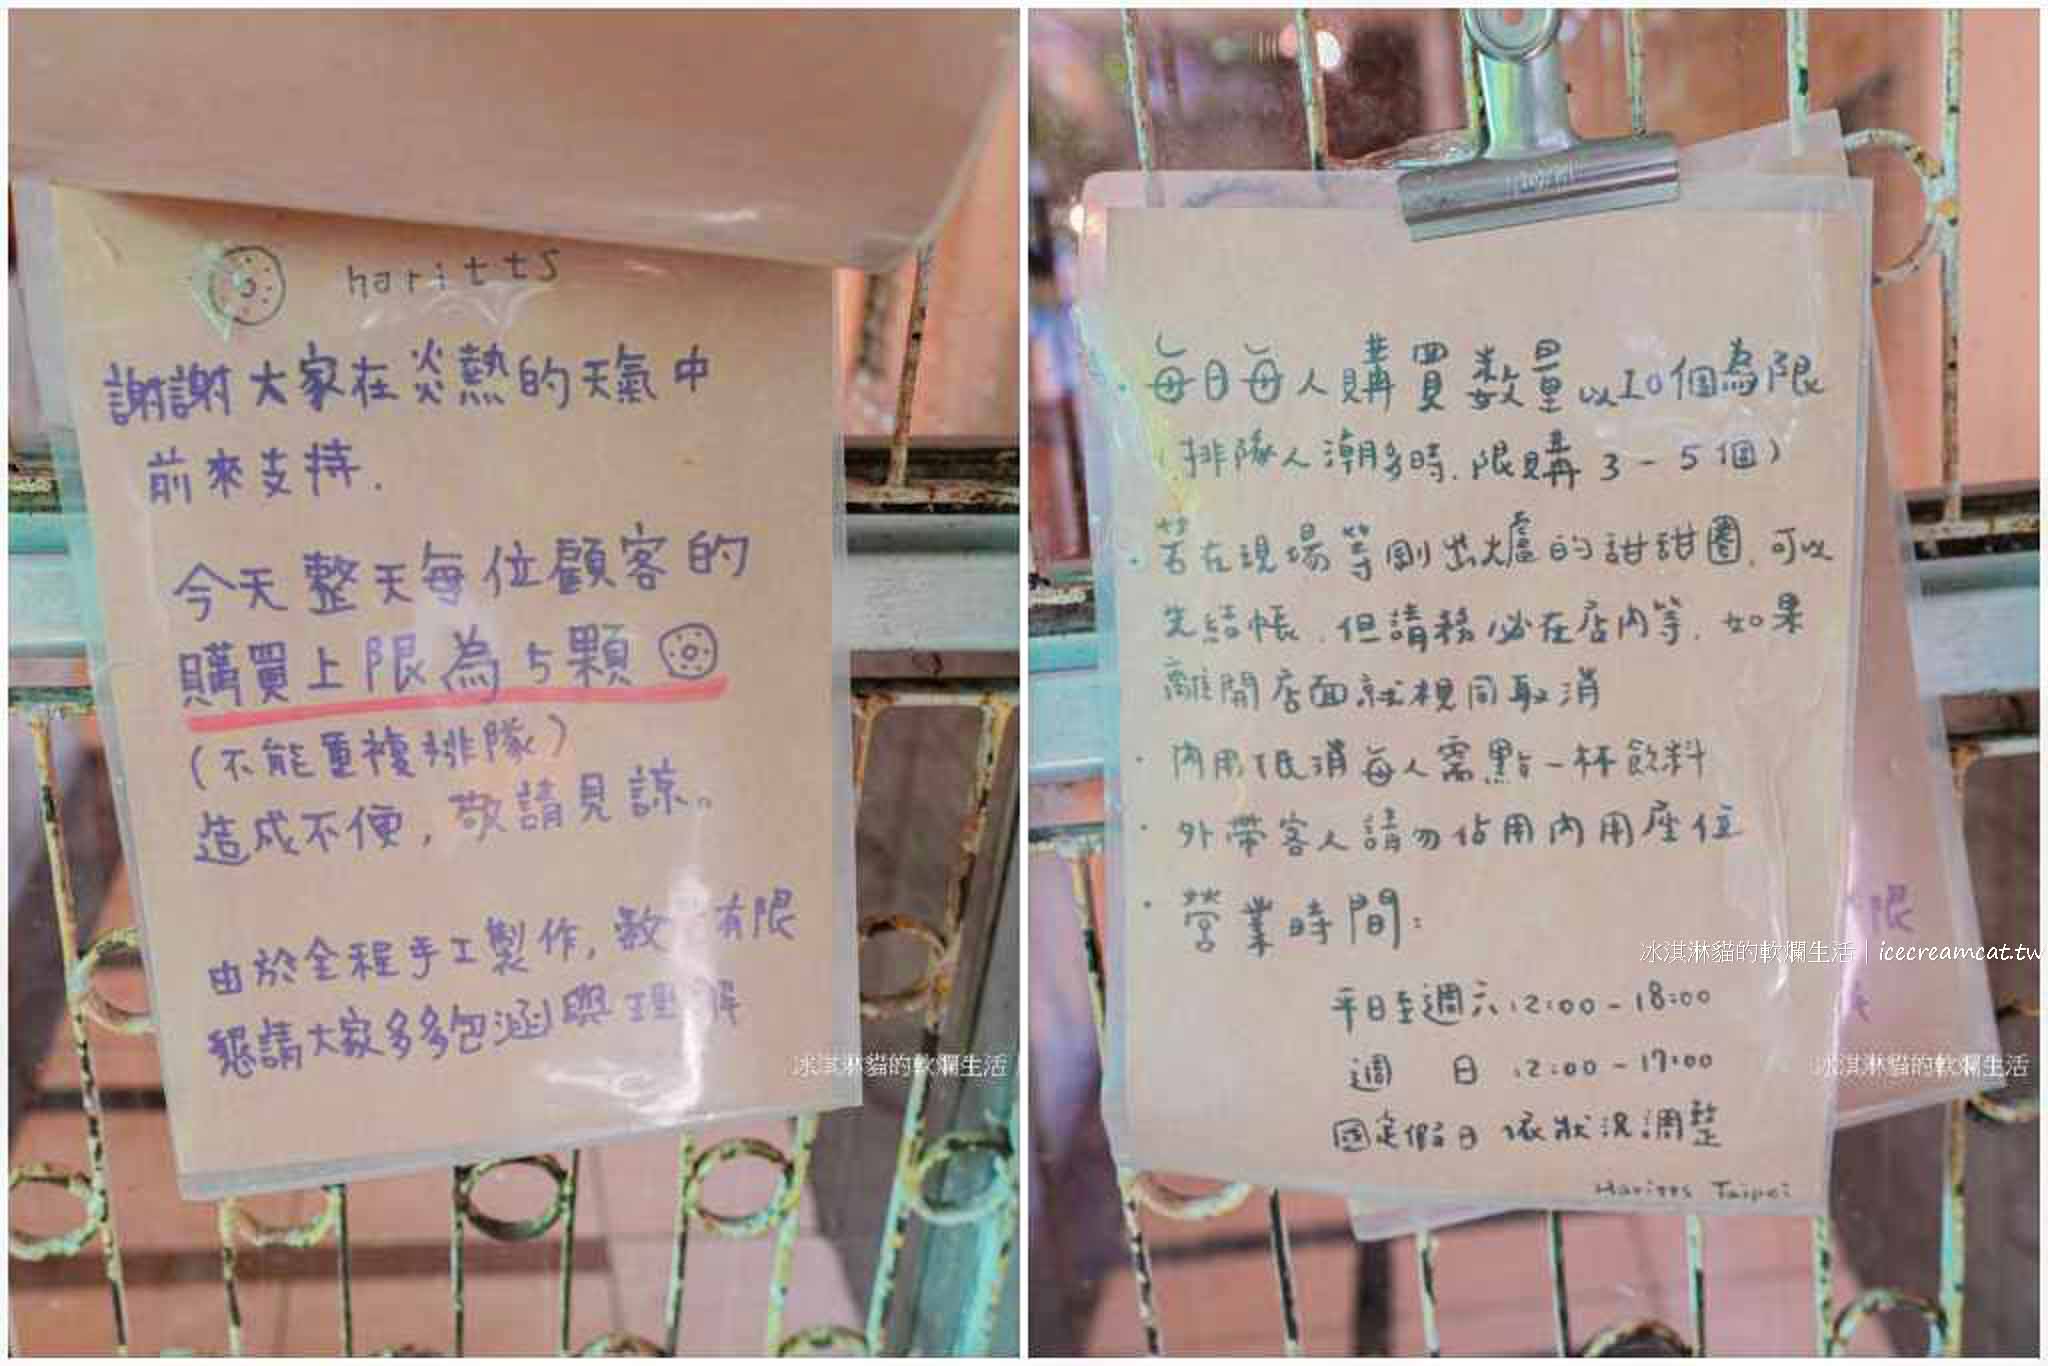 haritts
謝謝大家在炎熱的天氣中
前來支持.
今天整天每位顧客的
購買上限為5顆
(不能重複排隊)
造成不便,敬請見諒。
由於全程手工製作,數 有限
懇請大家多多包涵與理解
冰淇淋貓的軟爛生活
・每日每人購買数量以10個為限
(排隊人潮多時.限購3-5個)
・若在現場等剛出爐的甜甜圈.可以
先結帳.但請務必在店內等.如果
離開店面就視同取消
・內用低消每人需點一杯飲料
・外帶客人請勿佔用內用座位
・營業時間:
平日至週六12:00-18:00
週 日 12:00-17:00
國定假日 依狀況調整
Haritts Taipei
限
冰淇淋貓的軟爛生活|icecreamcat.tw
冰淇淋貓的軟爛生活